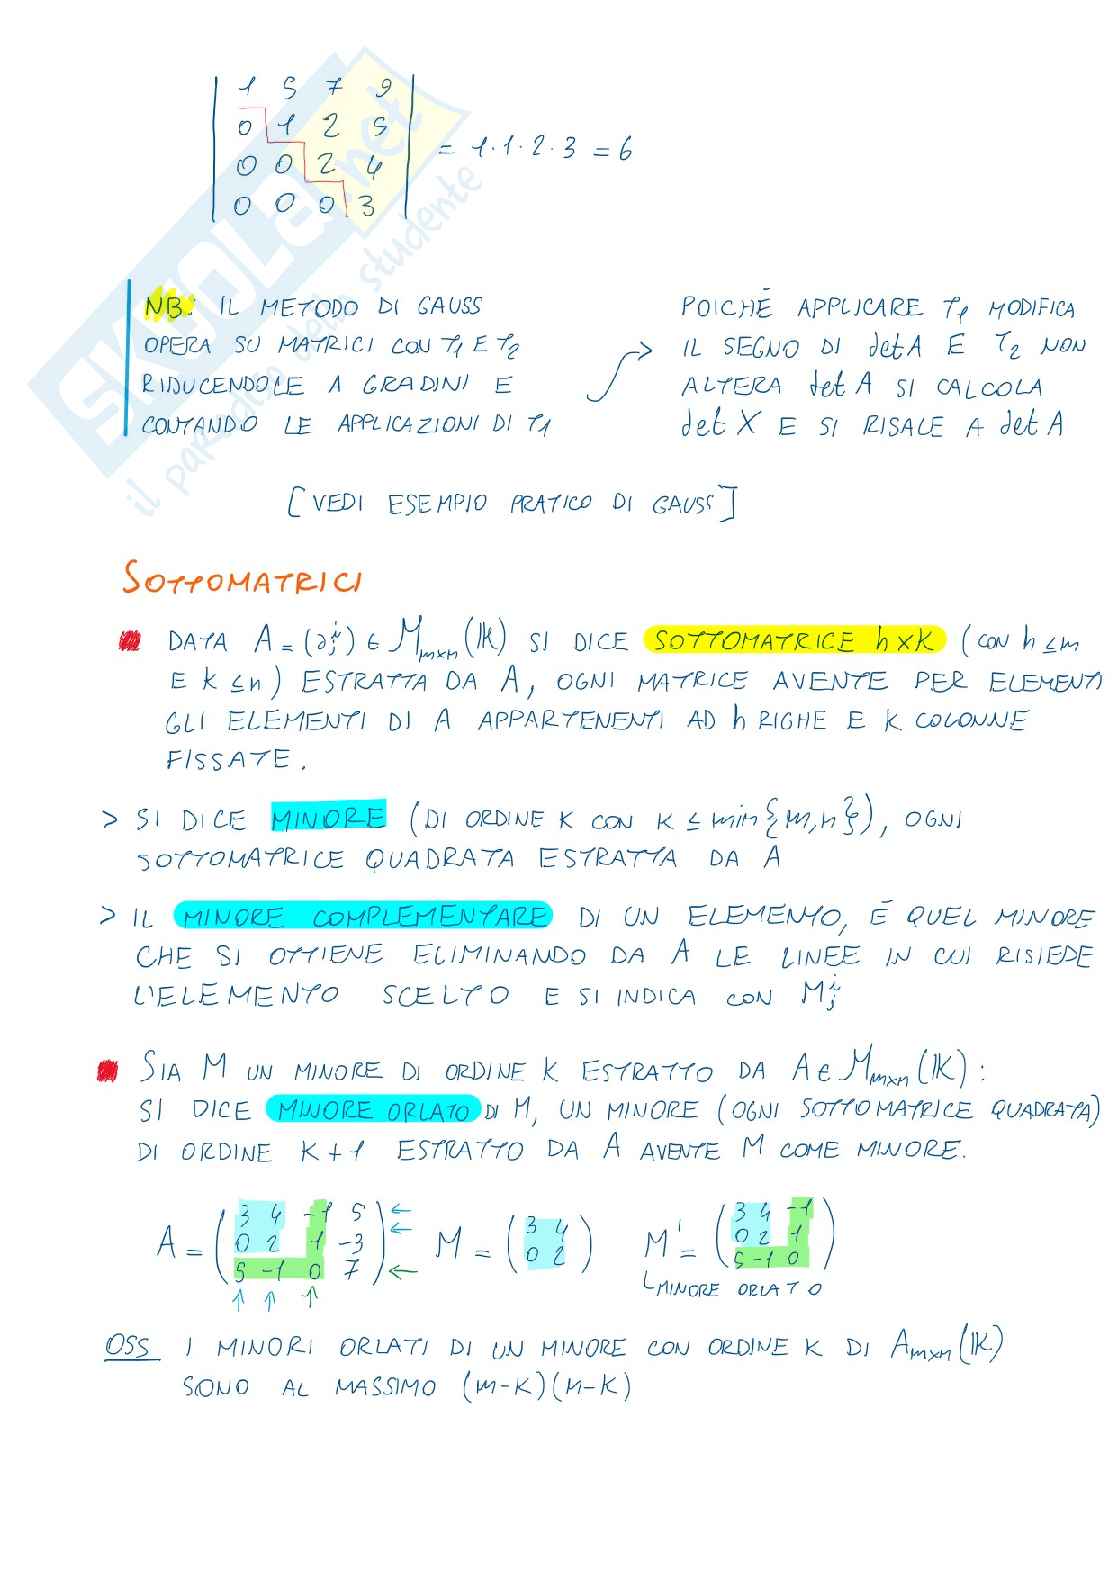 | 1 5 7 9 |
| 0 1 2 5 |
| 0 0 2 4 | = 1·1·2·3 = 6
| 0 0 0 3 |
SKUOLA.net
il paradiso dello studente
NB: IL METODO DI GAUSS
OPERA SU MATRICI CON T1 E T2
RIDUCENDOLE A GRADINI E
CONTANDO LE APPLICAZIONI DI T1
POICHÉ APPLICARE T1 MODIFICA
IL SEGNO DI det A E T2 NON
ALTERA det A SI CALCOLA
det X E SI RISALE A det A
[VEDI ESEMPIO PRATICO DI GAUSS]
SOTTOMATRICI
DATA A = (a^i_j) ∈ M_mxn(K) SI DICE SOTTOMATRICE hxK (CON h ≤ m
E K ≤ n) ESTRATTA DA A, OGNI MATRICE AVENTE PER ELEMENTI
GLI ELEMENTI DI A APPARTENENTI AD h RIGHE E K COLONNE
FISSATE.
> SI DICE MINORE (DI ORDINE K CON K ≤ min{m,n}), OGNI
SOTTOMATRICE QUADRATA ESTRATTA DA A
> IL MINORE COMPLEMENTARE DI UN ELEMENTO, É QUEL MINORE
CHE SI OTTIENE ELIMINANDO DA A LE LINEE IN CUI RISIEDE
L'ELEMENTO SCELTO E SI INDICA CON M^i_j
SIA M UN MINORE DI ORDINE K ESTRATTO DA A ∈ M_mxn(K):
SI DICE MINORE ORLATO DI M, UN MINORE (OGNI SOTTOMATRICE QUADRATA)
DI ORDINE K+1 ESTRATTO DA A AVENTE M COME MINORE.
A = ( 3 4 -1 5 ) ←
( 0 2 -1 -3 ) ←
( 5 -1 0 7 ) ←
↑ ↑ ↑
M = ( 3 4 )
( 0 2 )
M' = ( 3 4 -1 )
( 0 2 -1 )
( 5 -1 0 )
MINORE ORLATO
OSS I MINORI ORLATI DI UN MINORE CON ORDINE K DI A_mxn(K)
SONO AL MASSIMO (m-K)(n-K)